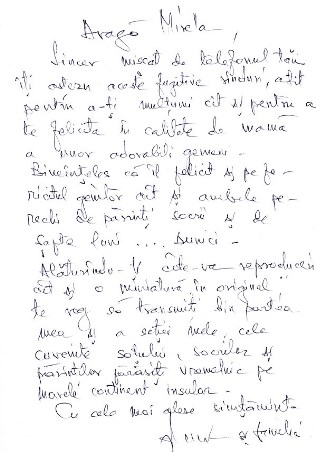 Dragă Mirela,
Sincer mișcat de telefonul tău
îți aștern aceste fugitive rînduri, atît
pentru a-ți mulțumi cît și pentru a
te felicita în calitate de mamă
a unor adorabili gemeni.
Bineînțeles că îl felicit și pe fe-
ricitul genitor cît și ambele pe-
rechi de părinți socri și de
șapte luni .... bunici.
Alăturîndu-ți cîte-va reproduceri
cît și o miniatură în original
te rog să transmiți din partea
mea și a soției mele, cele
cuvenite soțului, socrilor și
părinților părăsiți vremelnic pe
marele continent insular.
Cu cele mai alese simțăminte
și familia